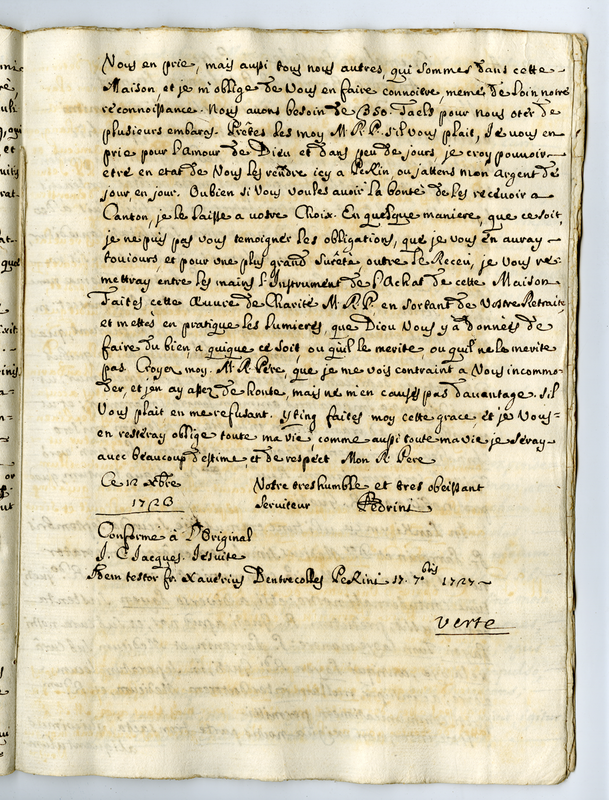 Vous en prie, mais aussi tous nous autres, qui sommes dans cette
Maison, et je m'oblige de Vous en faire connoitre, meme de Loin notre
reconnoissance. Nous avons besoin de 350. Taels pour nous oter de
plusieurs embaras. Prêtes les moy M. R. P. s'il vous plait, Je vous en
prie pour l'amour de Dieu et dans peu de jours, je croy pouvoir
etre en etat de Vous les rendre icy a Pekin, ou j'attens mon argent de
jour, en jour. Ou bien si Vous voules avoir la bonté de les recevoir a
Canton, je le laisse a votre Choix. En quelque maniere, que ce soit,
je ne puis pas vous temoigner les obligations, que je vous en auray
toujours, et pour une plus grand sureté outre Le Receu, je vous re-
mettray entre les mains l'Instrument de l'Achat de cette Maison
Faites cette Œuvre de Charité M. R. P. en sortant de Vostre Retraite
et mettes en pratique les Lumieres, que Dieu Vous y a données de
faire du bien a quique ce soit, ou qu'il le merite ou qu'il ne le merite
pas. Croyez moy. M. R. Père, que je me vois contraint a Vous incommo-
der, et j'en ay assez de honte, mais ne m'en causes pas d'avantage. s'il
Vous plait en me refusant. faites moy cette grace, et je Vous
en resteray oblige toute ma vie, comme aussi toute ma vie je seray
avec beaucoup d'estime, et de respect Mon R. Pere
Ce 12 xbre Votre tres humble et tres obeissant
1723 Serviteur Pedrini
Conforme à L'Original
J. Jacques. Jesuite
Idem testor fr. Xaverius Dentrecolles Pekini 17. 7bris 1727
verte